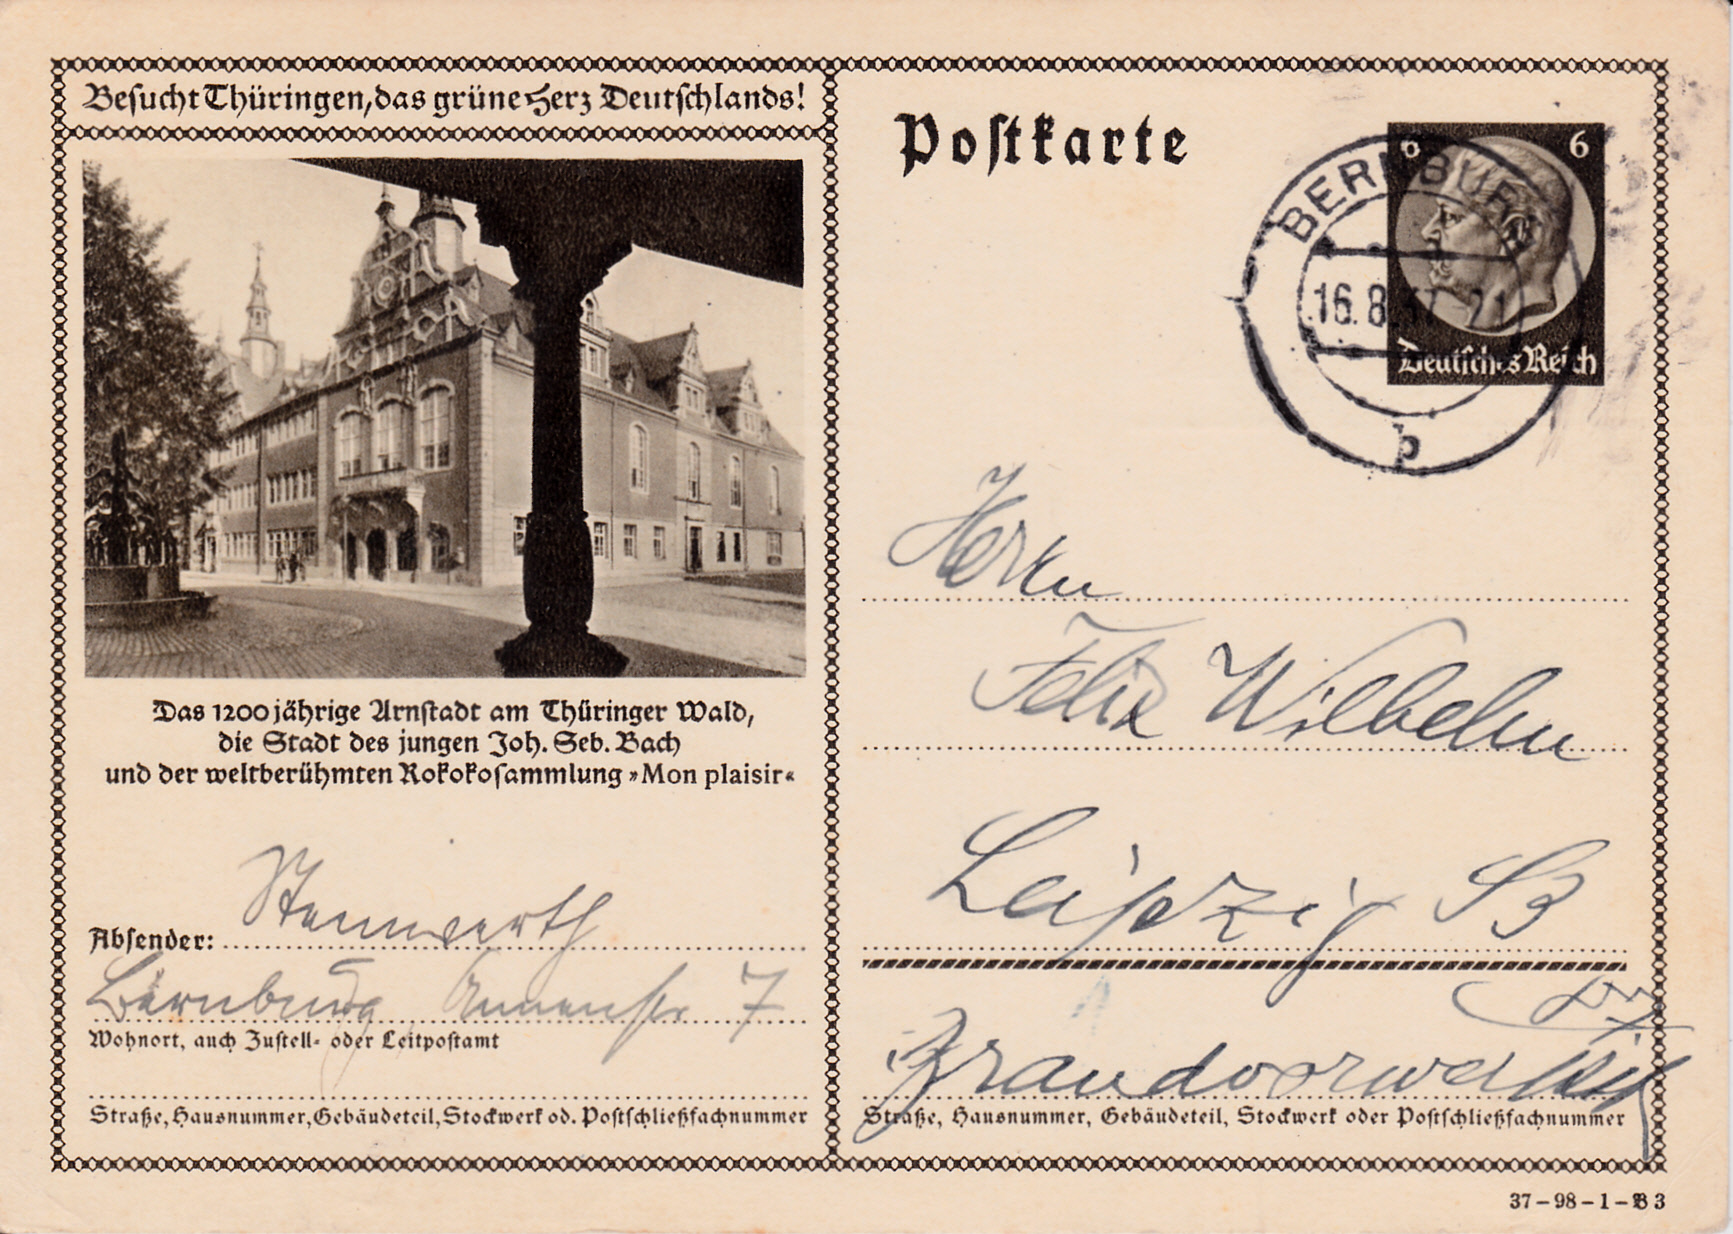 Besucht Thüringen, das grüne Herz Deutschlands!
Das 1200jährige Arnstadt am Thüringer Wald,
die Stadt des jungen Joh. Seb. Bach
und der weltberühmten Rokokosammlung »Mon plaisir«
Absender: Stennwerth
Bernburg, Annenstr 7
Wohnort, auch Zustell- oder Leitpostamt
Straße, Hausnummer, Gebäudeteil, Stockwerk od. Postschließfachnummer
Postkarte
6 6
BERNBURG
16.8.37 21
b
Deutsches Reich
Herrn
Felix Wilhelm
Leipzig
Straße, Hausnummer, Gebäudeteil, Stockwerk oder Postschließfachnummer
37-98-1-B3